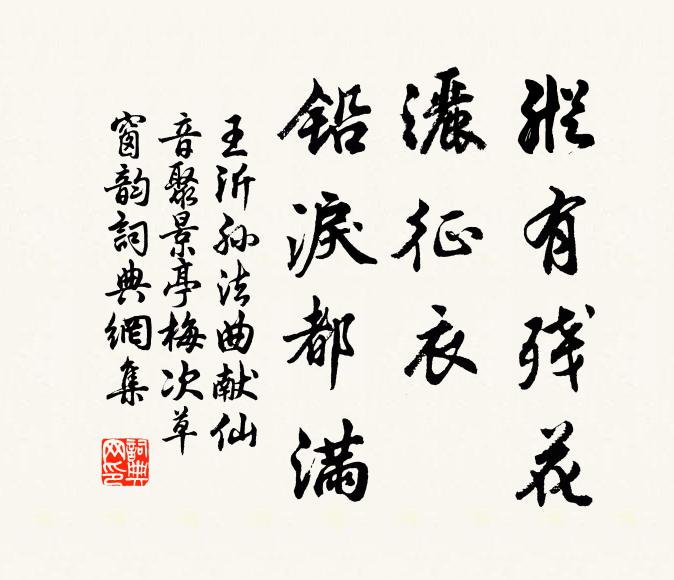 縱有殘花
灑征衣
鉛淚都滿
王沂孫法曲献仙
音聚景亭梅次草
窗韵詞典網集
詞典网印